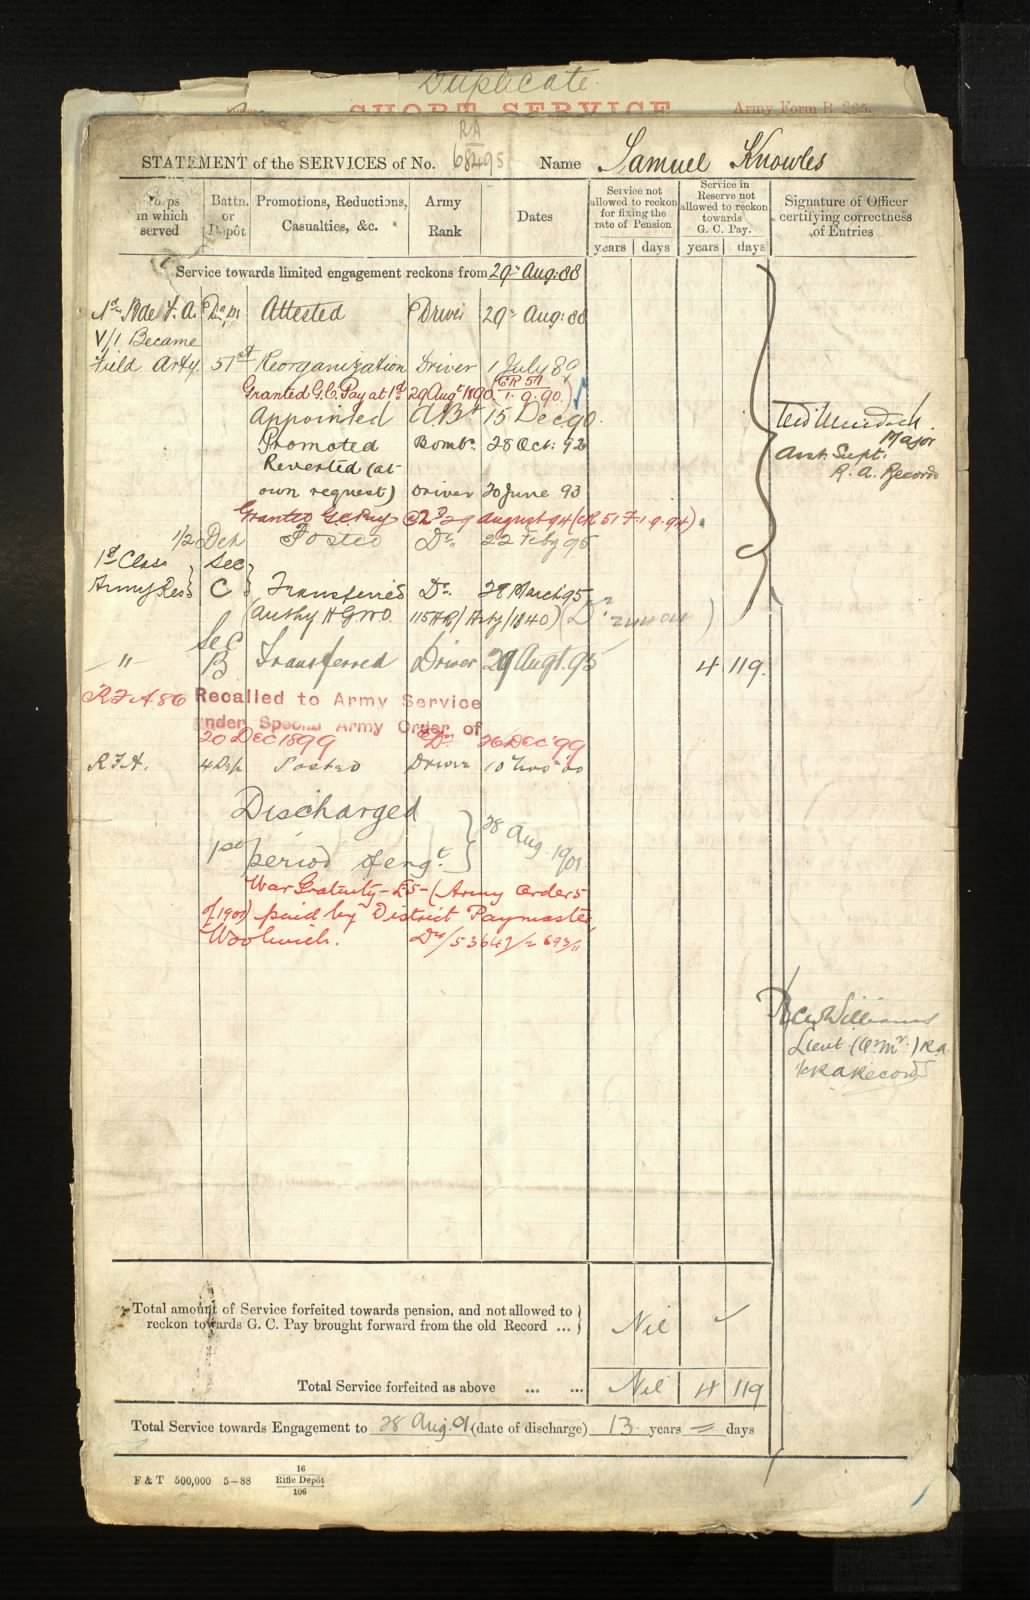 Duplicate
SHORT SERVICE
Army Form B. 265.
RA
STATEMENT of the SERVICES of No. 68495 Name Samuel Knowles
Corps in which served
Battn. or Depôt
Promotions, Reductions, Casualties, &c.
Army Rank
Dates
Service not allowed to reckon for fixing the rate of Pension
years days
Service in Reserve not allowed to reckon towards G. C. Pay.
years days
Signature of Officer certifying correctness of Entries
Service towards limited engagement reckons from 29 Aug: 88
Bde F. A. Attested Driver 29 Aug: 88
V/1 Became
Field Arty. 51st Reorganization Driver 1 July 89
Granted G.C. Pay at 1d 29 Augt 1890 (CR 51 1. 9. 90.)
Appointed A.Br 15 Dec 90.
Promoted Bombr. 28 Oct: 92
Reverted (at
own request) Driver 20 June 93
Granted G.C. Pay @ 2d 29 August 94 (CR 51 F 1 9. 94).
1/2 Dep Posted Dr. 22 Feby 95
1st Class Sec
Army Res C Transferred Dr. 28 March 95
(Authy H G W O. 115 / Arty / 1840)
Sec
" B Transferred Driver 29 Augt. 95 4 119.
R F A 86 Recalled to Army Service
under Special Army Order of
20 Dec 1899 Dr. 26 Dec '99
R. F. A. 4 Dep Posted Driver 10
Discharged
1st period of engt. 28 Aug. 1901
War Gratuity - £5 - (Army Order 5
of 1901) paid by District Paymaster,
Woolwich.
Major
Asst. Supt.
R. A. Records
Williams
Lieut (Qr Mr.) R.A
RA Records
Total amount of Service forfeited towards pension, and not allowed to
reckon towards G. C. Pay brought forward from the old Record ... Nil ✓
Total Service forfeited as above ... ... Nil 4 119
Total Service towards Engagement to 28 Aug. 01 (date of discharge) 13 years = days
F & T 500,000 5—88 16
Rifle Depôt
106